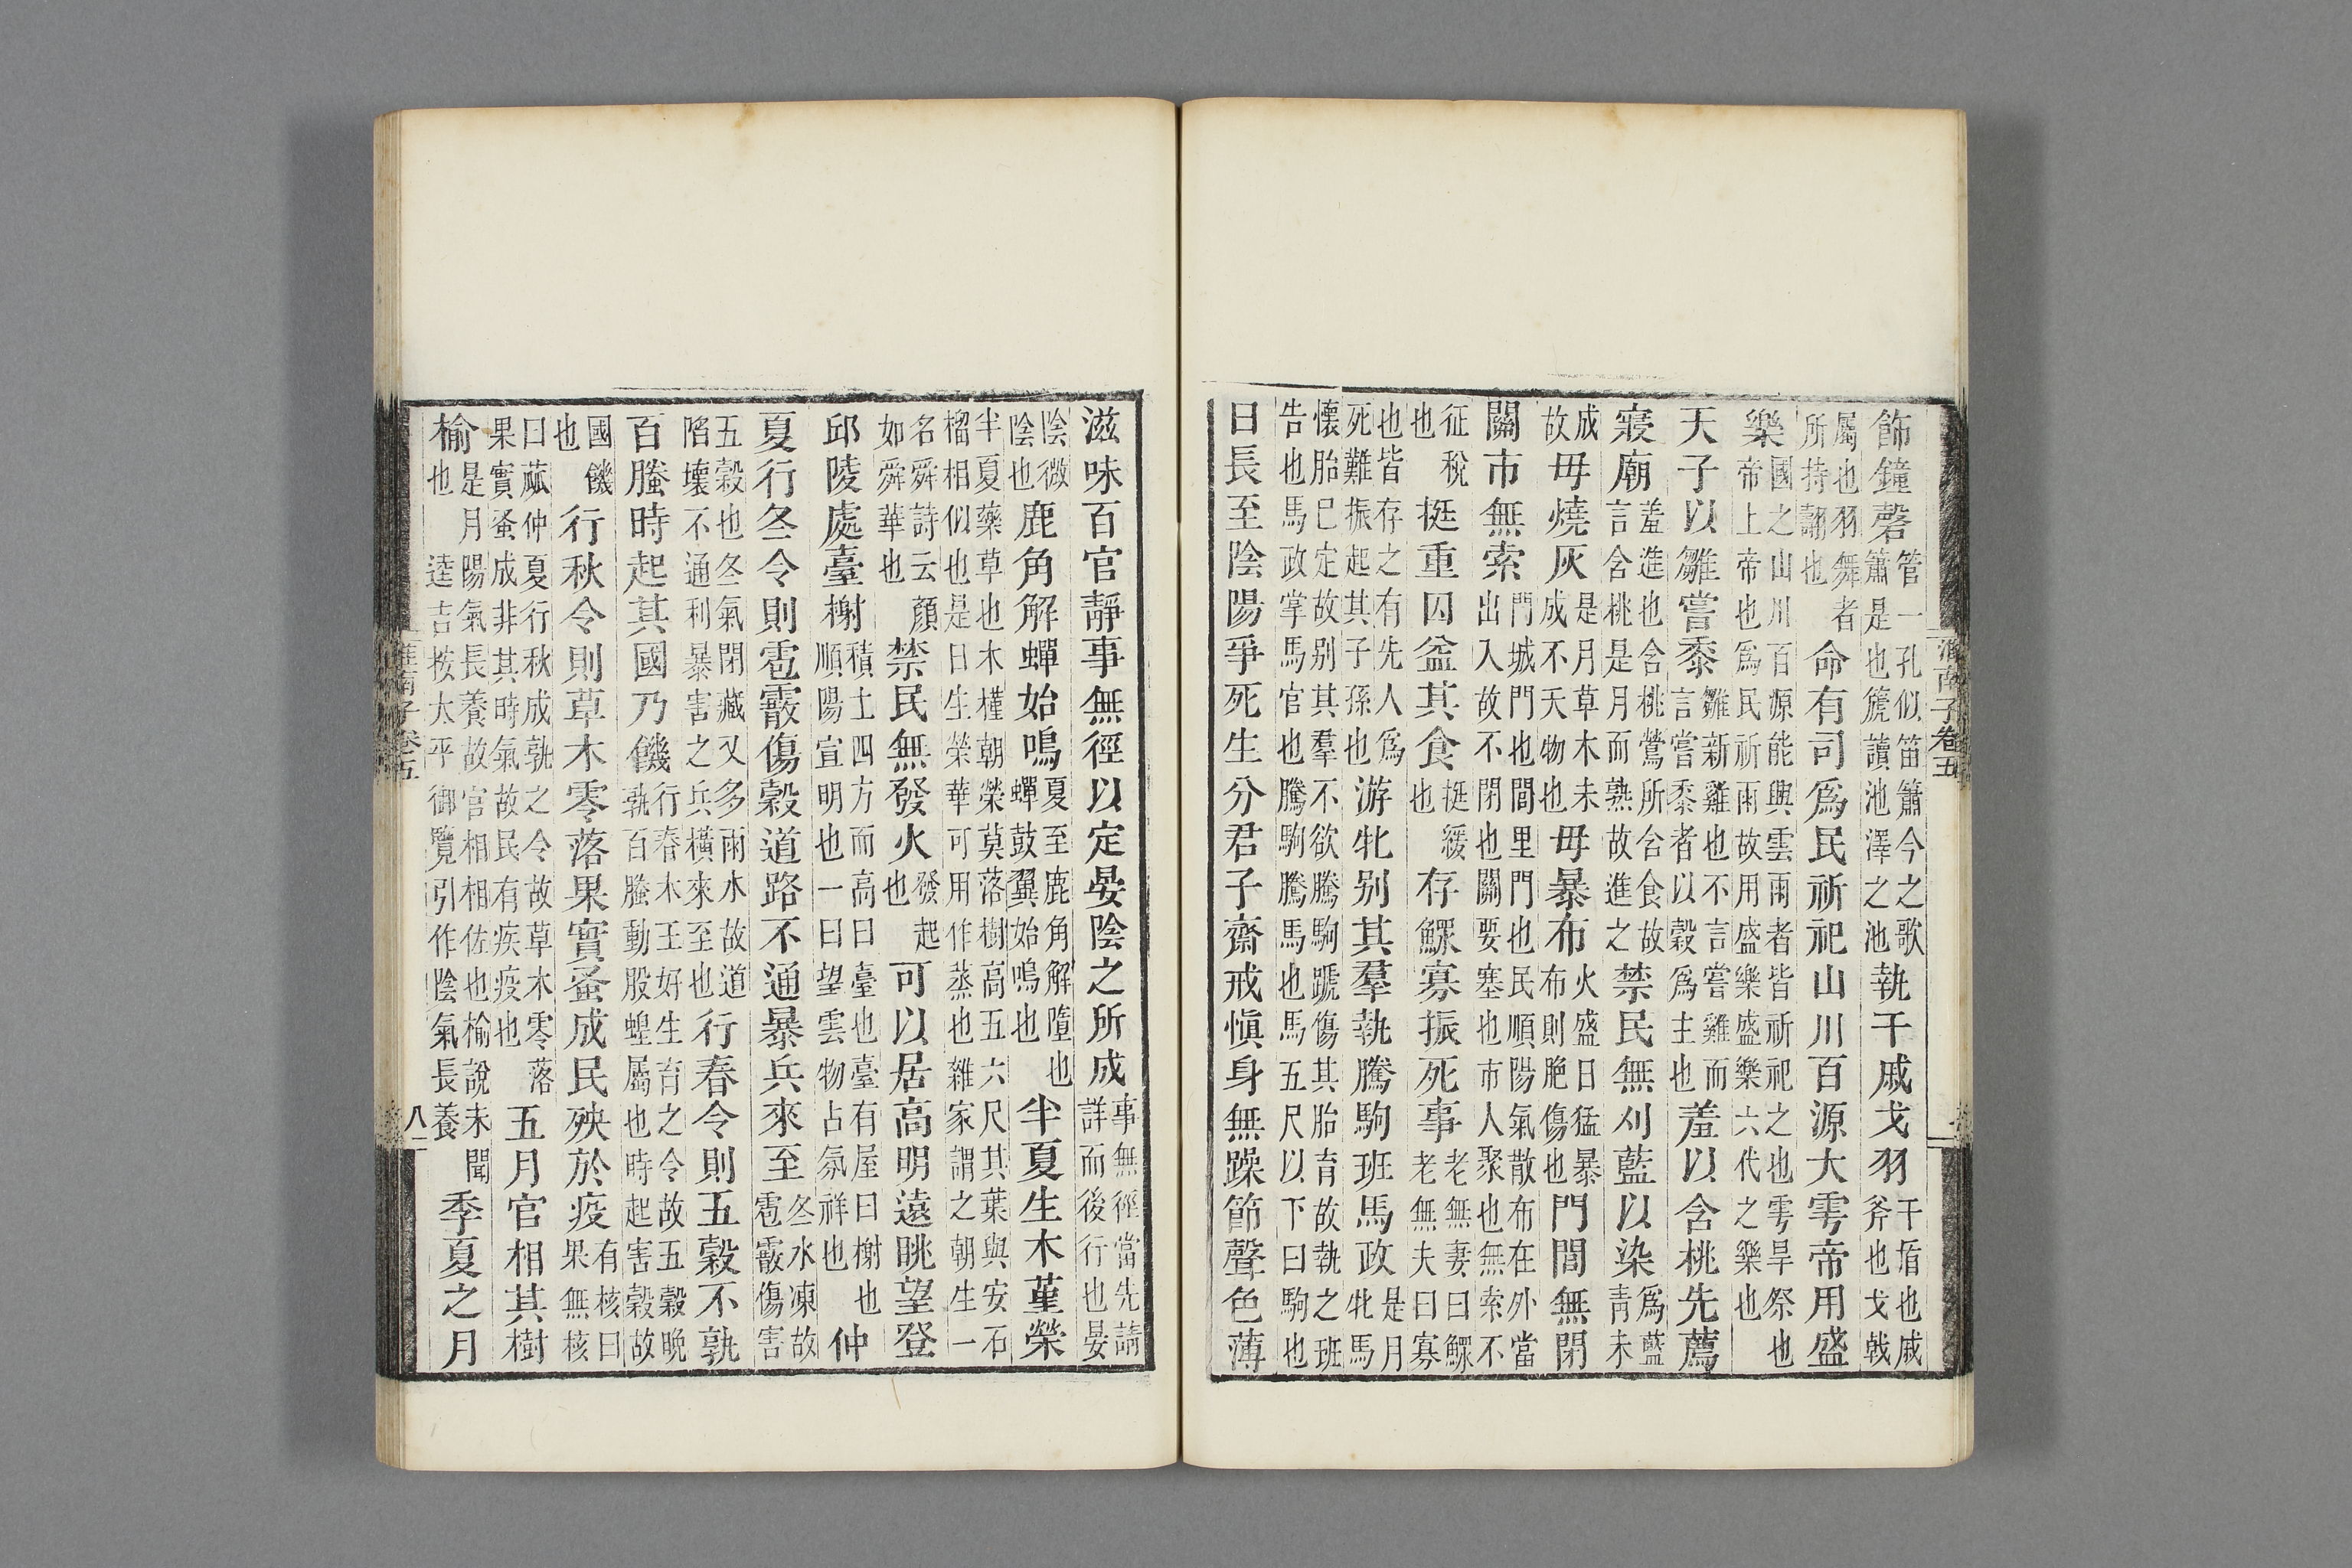 飾鐘磬管一孔似笛簫今之歌簫是也篪讀池澤之池執干戚戈羽干盾也戚斧也戈戟
屬也羽舞者所持翿也命有司爲民祈祀山川百源大雩帝用盛
樂國之山川百源能與雲雨者皆祈祀之也雩旱祭也帝上帝也爲民祈雨故用盛樂盛樂六代之樂也
天子以雛嘗黍雛新雞也不言嘗雞而言嘗黍者以穀爲主也羞以含桃先薦
寢廟羞進也含桃鶯所含食故言含桃是月而熟故進之禁民無刈藍以染爲藍青未
成故毋燒灰是月草木未成不夭物也毋暴布火盛日猛暴布則脆傷也門閭無閉
關市無索門城門也閭里門也民順陽氣散布在外當出入故不閉也關要塞也市人聚也無索不
征稅也挺重囚益其食挺緩也存鰥寡振死事老無妻曰鰥老無夫曰寡
也皆存之有先人爲死難振起其子孫也游牝别其羣執騰駒班馬政是月牝馬
懷胎已定故别其羣不欲騰駒蹏傷其胎育故執之班告也馬政掌馬官也騰駒騰馬也馬五尺以下曰駒也
日長至陰陽爭死生分君子齋戒愼身無躁節聲色薄
淮南子卷五
滋味百官靜事無徑以定晏陰之所成事無徑當先請詳而後行也晏
陰微陰也鹿角解蟬始鳴夏至鹿角解墮也蟬鼓翼始鳴也半夏生木堇榮
半夏藥草也木槿朝榮莫落樹高五六尺其葉與安石榴相似也是日生榮華可用作蒸也雜家謂之朝生一
名舜詩云顏如舜華也禁民無發火發起也可以居高明遠眺望登
邱陵處臺榭積土四方而高曰臺也臺有屋曰榭也順陽宣明也一曰望雲物占氛祥也仲
夏行冬令則雹霰傷穀道路不通暴兵來至冬水凍故雹霰傷害
五穀也冬氣閉藏又多雨水故道陷壞不通利暴害之兵橫來至也行春令則五穀不孰
百螣時起其國乃饑行春木王好生育之令故五穀晚孰百螣動股蝗屬也時起害穀故
國饑也行秋令則草木零落果實蚤成民殃於疫有核曰果無核
曰蓏仲夏行秋成孰之令故草木零落果實蚤成非其時氣故民有疾疫也五月官相其樹
榆是月陽氣長養故官相相佐也榆說未聞也逵吉按太平御覽引作陰氣長養季夏之月
淮南子卷五
八